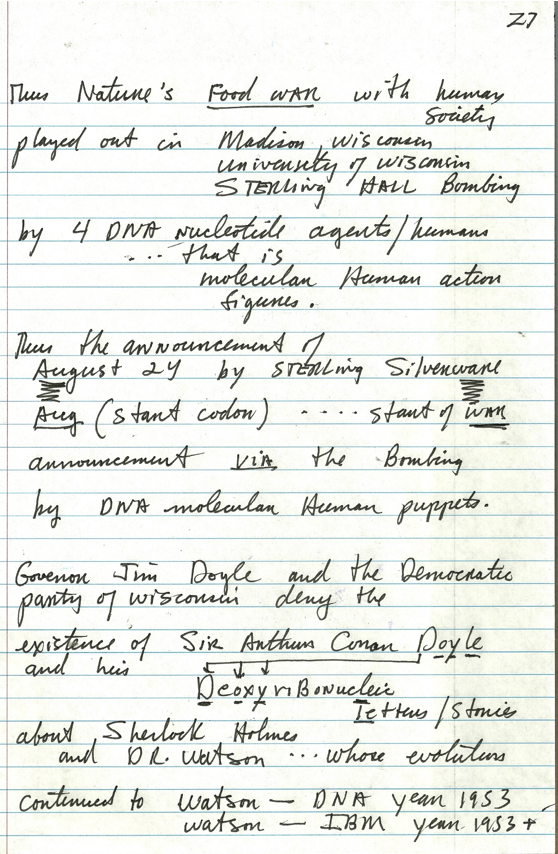 27
Thus Nature's Food WAR with human
society
played out in Madison, Wisconsin
University of Wisconsin
STERling HALL Bombing
by 4 DNA nucleotide agents/humans
... that is
molecular Human action
figures.
Thus the announcement of
August 24 by STERling Silverware
Aug (start codon) .... start of WAR
announcement VIA the Bombing
by DNA molecular Human puppets.
Govenor Jim Doyle and the Democratic
party of Wisconsin deny the
existence of Sir Arthur Conan Doyle
and his
DeoxyriBonucleic
Letters / Stories
about Sherlock Holmes
and DR. Watson ... whose evolution
continued to Watson — DNA year 1953
Watson — IBM year 1953 +